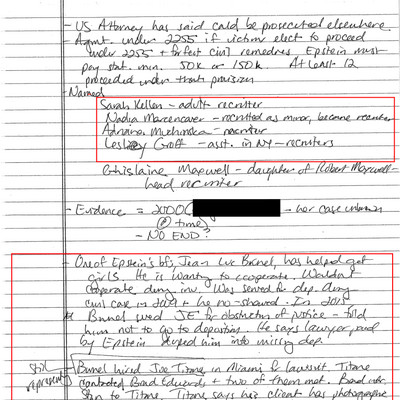 - US Attorney has said could be prosecuted elsewhere.
- Agmt. under 2255 if victims elect to proceed
under 2255 + forfeit civil remedies, Epstein must
pay stat. min. 50K or 150K. At least 12
proceeded under that provision
- Named
Sarah Kellen - adult recruiter
Nadia Marcencover - recruited as minor, became recruiter
Adriana Muchinska - recruiter
Lesley Groff - asst. in NY - recruiters
Ghislaine Maxwell - daughter of Robert Maxwell -
head recruiter
- Evidence = - her case unknown
time
- NO END?
- One of Epstein's bfs, Jean Luc Brunel, has helped get
girls. He is wanting to cooperate. Wouldn't
cooperate during inv. Was served for dep. during
civil case in + he no-showed. In
Brunel sued JE for obstruction of justice - told
him not to go to deposition. He says lawyer paid
by Epstein him into missing dep.
still
representing
Brunel hired Joe Titone in Miami for lawsuit. Titone
contacted Brad Edwards + two of them met. Brad
to Titone. Titone says his client has photographs